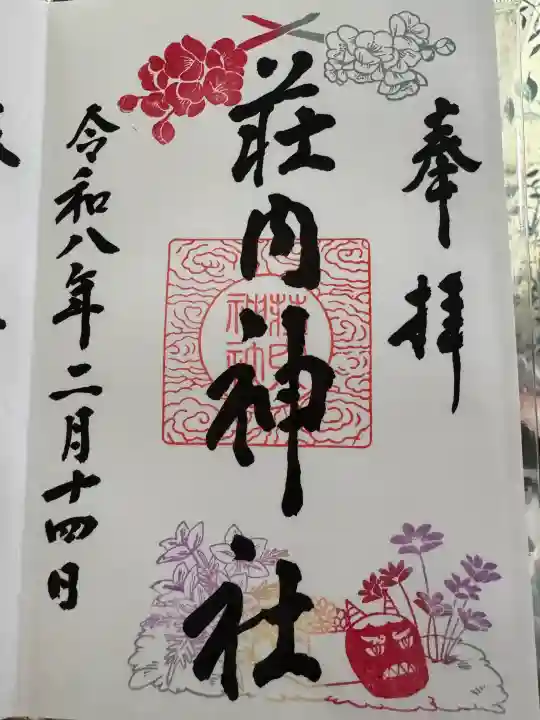 奉拝
荘内神社
令和八年二月十四日